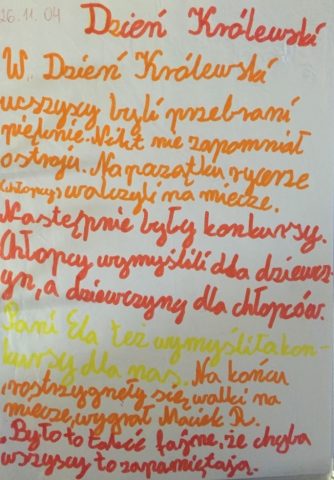 26.11.04
Dzień Królewski
W Dzień Królewski
uczszyscy byli przebrani
pięknie. Nikt nie zapomniał
o stroju. Na początku rycerze
(chłopcy) walczyli na miecze.
Następnie były konkursy.
Chłopcy wymyślili dla dziewcz-
yn, a dziewczyny dla chłopców.
Pani Ela też wymyśliła kon-
kursy dla nas. Na końcu
rostrzygnęły się walki na
miecze, wygrał Maciek R.
Było to takie fajne, że chyba
wszyscy to zapamiętają.